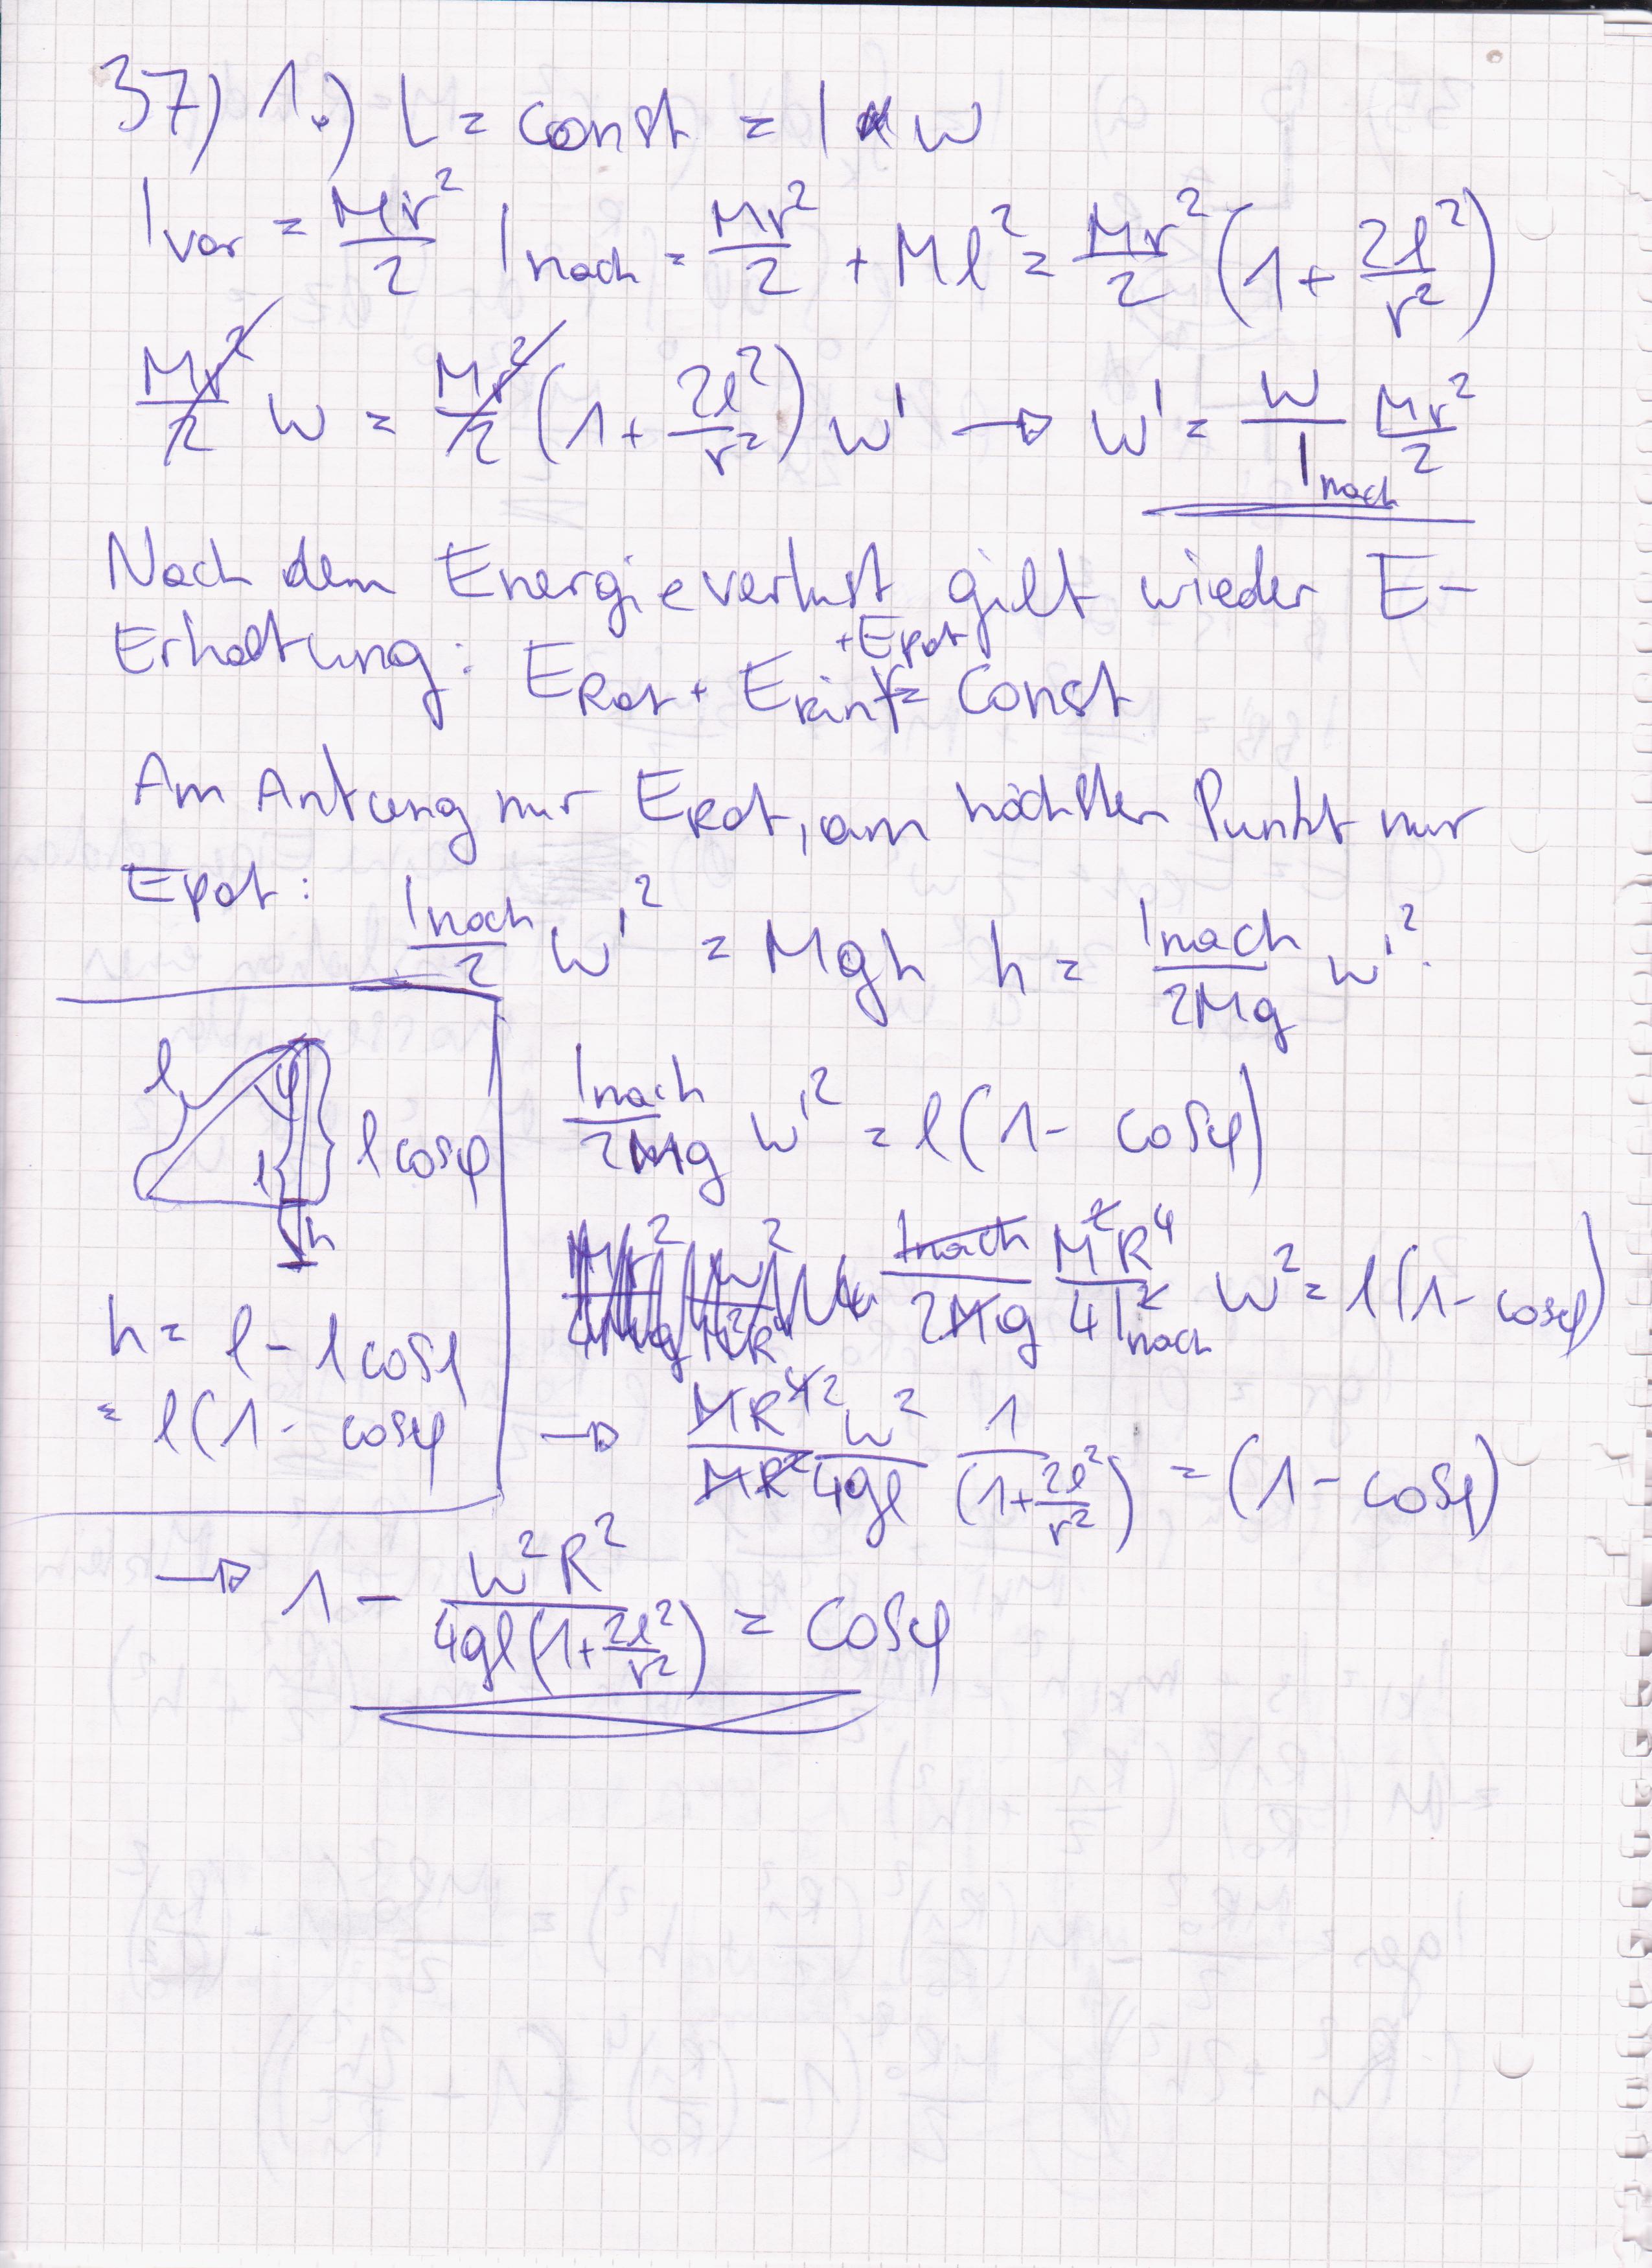 37) 1.) L = const = I w
I vor = Mr²/2 I nach = Mr²/2 + Ml² = Mr²/2 (1 + 2l²/r²)
Mr²/2 w = Mr²/2 (1 + 2l²/r²) w' → w' = w/I nach Mr²/2
Nach dem Energieverlust gilt wieder E-
Erhaltung: ERot + Ekin + Epot = const
Am Anfang nur ERot, am höchsten Punkt nur
Epot: I nach/2 w'² = Mgh h = I nach/2Mg w'²
l φ l cosφ h
h = l - l cosφ
= l(1 - cosφ
I nach/2Mg w'² = l(1 - cosφ)
I nach/2Mg M²R⁴/4I²nach w² = l(1 - cosφ)
→ MR⁴²/MR² w²/4gl 1/(1+2l²/r²) = (1 - cosφ)
→ 1 - w²R²/4gl(1+2l²/r²) = cosφ